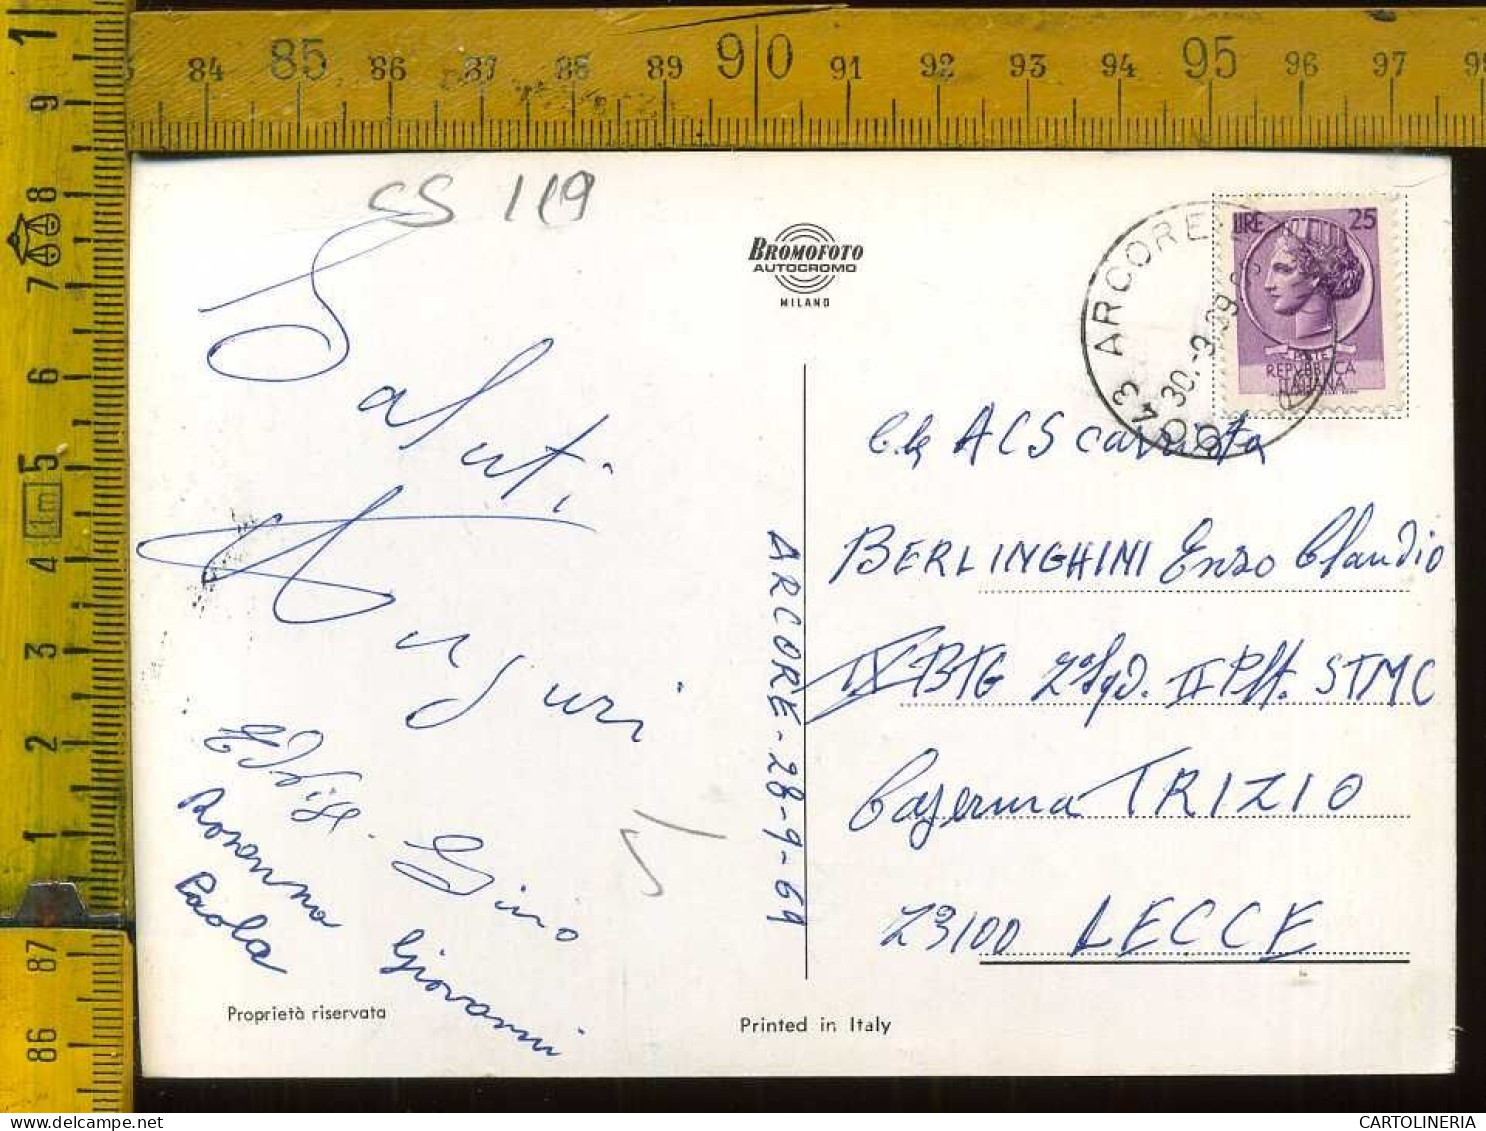 84 85 86 87 88 89 90 91 92 93 94 95 96 97
1 9 8 7 6 5 1m 4 3 2 1 87 86
CS 119
BROMOFOTO
AUTOCROMO
MILANO
ARCORE
30.-9.69
LIRE 25
POSTE
REPVBBLICA
ITALIANA
Saluti
Auguri
Edvige.
Gino
Rosanna
Giovanni
Paola
ARCORE-28-9-69
ACS
BERLINGHINI Enzo Claudio
IX BTG 2ª Sqd. II Plt. STMC
Caserma TRIZIO
73100 LECCE
Proprietà riservata
Printed in Italy
CARTOLINERIA